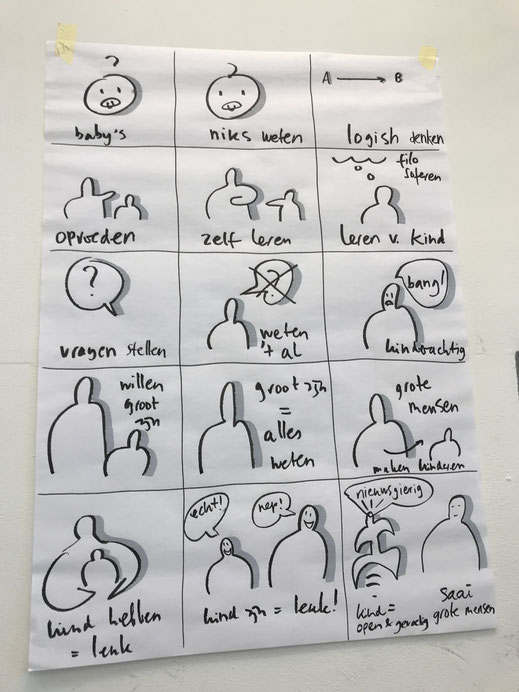 ?
baby's
?
niks weten
A → B
logish denken
opvoeden
zelf leren
filo
soferen
leren v. kind
?
vragen stellen
?
weten
't al
bang!
kinderachtig
willen
groot
zijn
groot zijn
=
alles
weten
grote
mensen
maken kinderen
kind hebben
= leuk
echt!
nep!
kind zijn = leuk!
nieuwsgierig
kind =
open &
saai
grote mensen